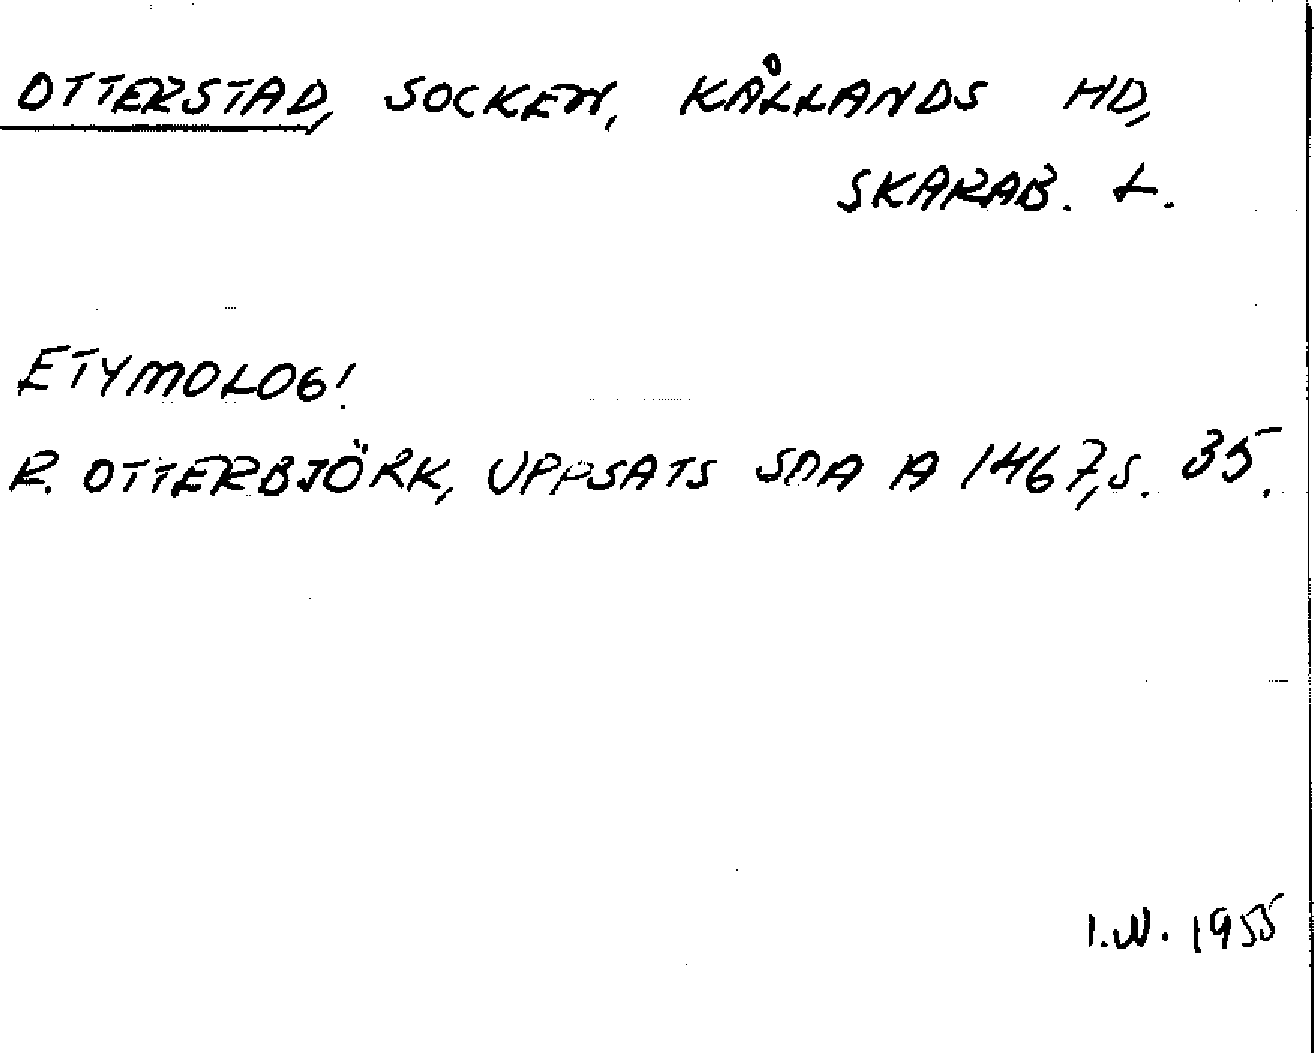 OTTERSTAD, SOCKEN, KÅLLANDS HD,
SKARAB. L.
ETYMOLOG!
R. OTTERBJÖRK, UPPSATS SOA A 1467, S. 35.
I.W. 1955